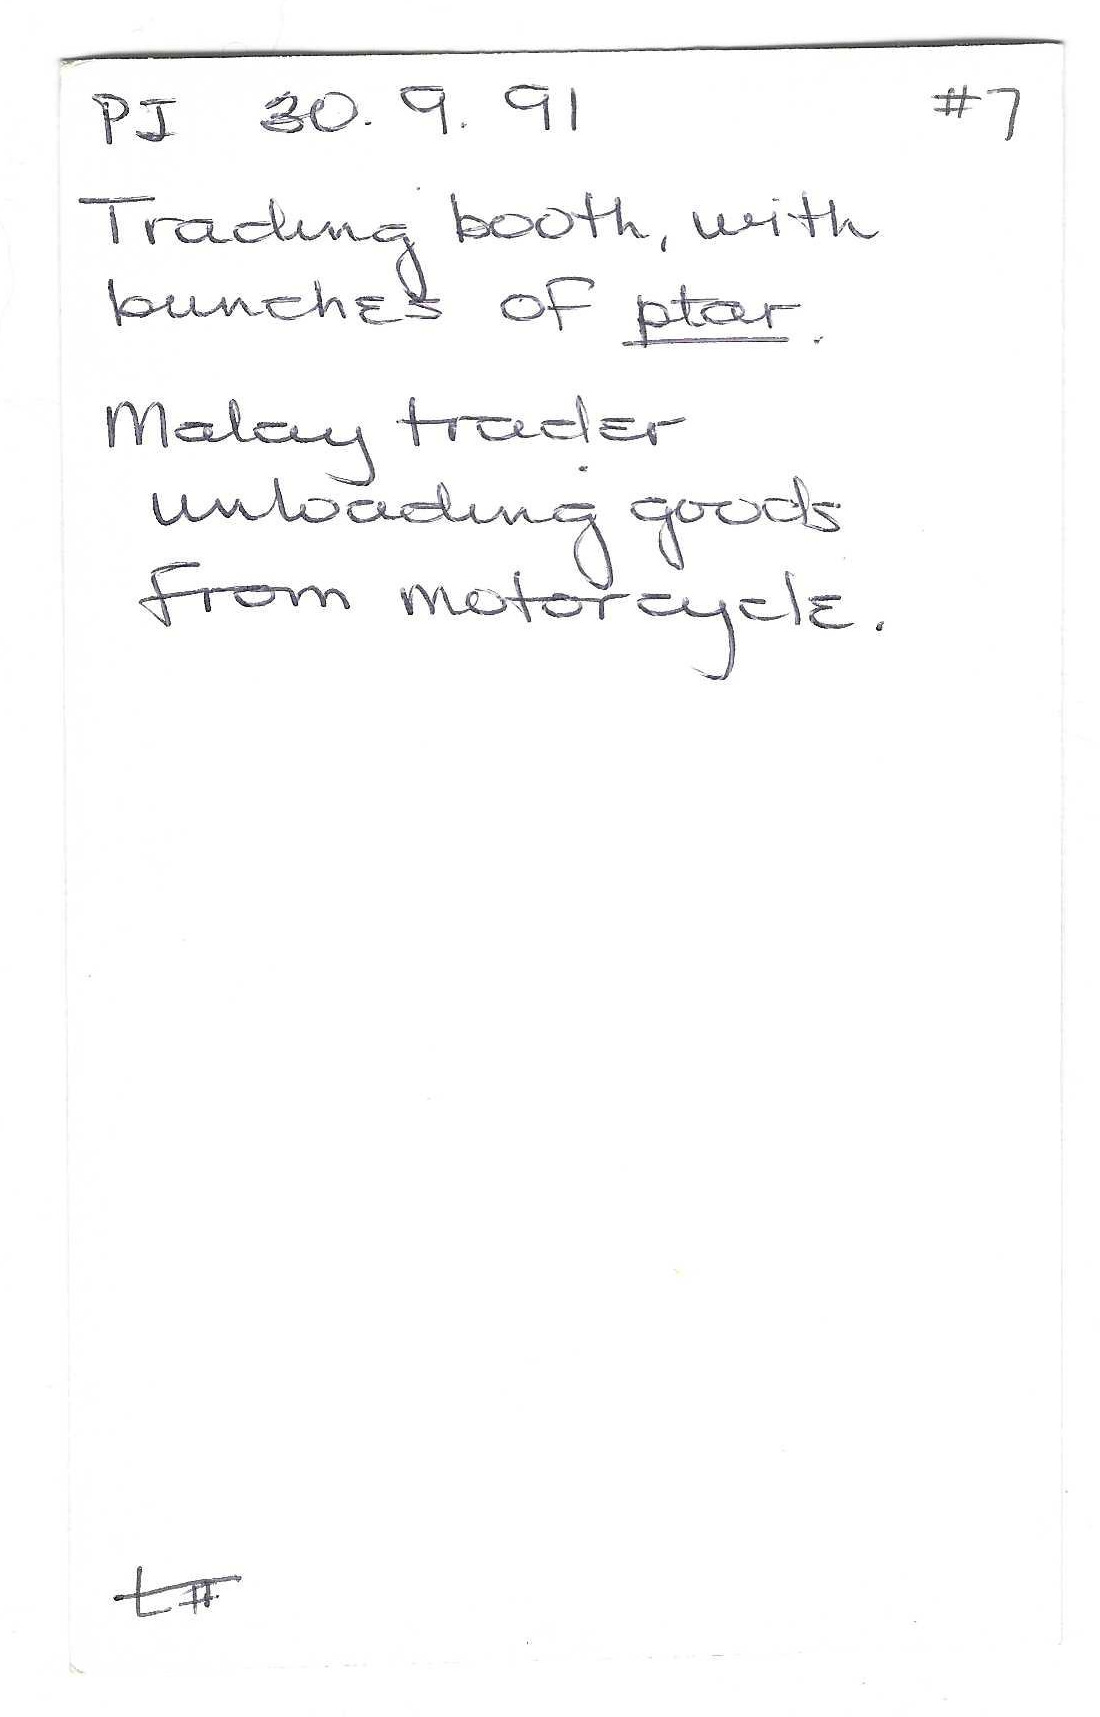 PJ 30.9.91 #7
Trading booth, with
bunches of ptar.
Malay trader
unloading goods
from motorcycle.